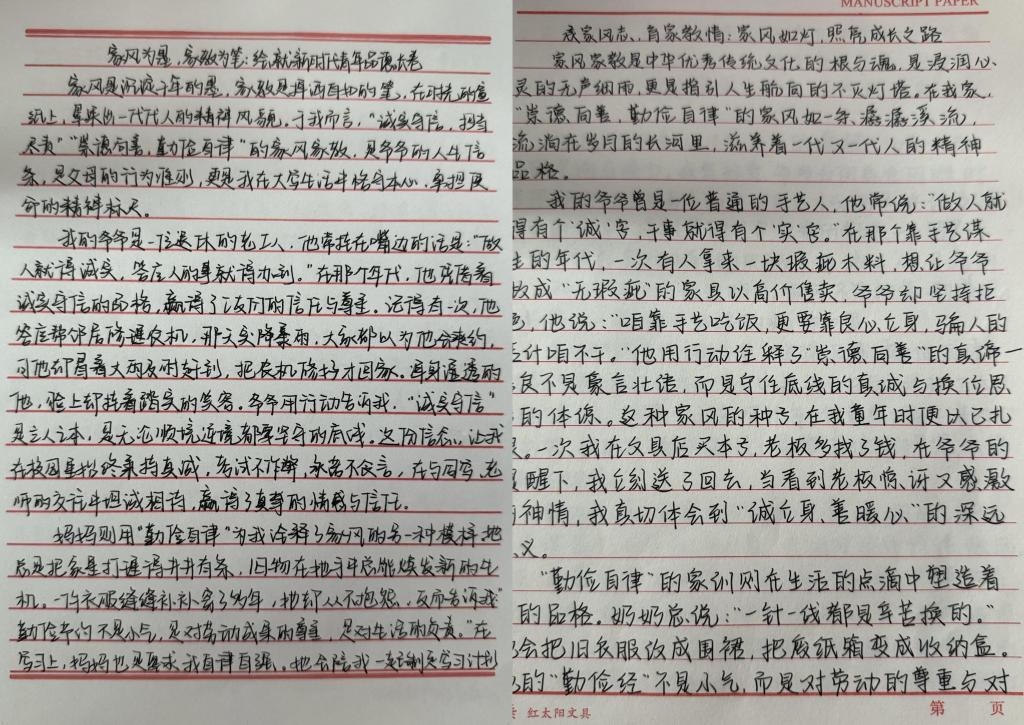 家风为墨，家教为笔：绘就新时代青年品德长卷
家风是沉淀千年的墨，家教是挥洒自如的笔，在时光的宣
纸上，晕染出一代代人的精神风貌。于我而言，“诚实守信，担当
尽责”“崇德向善，勤俭自律”的家风家教，是爷爷的人生信
条，是父母的行为准则，更是我在大学生活中恪守本心、勇担使
命的精神标尺。
我的爷爷是一位退休的老工人，他常挂在嘴边的话是：“做
人就得诚实，答应人的事就得办到。”在那个年代，他凭借着
诚实守信的品格，赢得了工友们的信任与尊重。记得有一次，他
答应帮邻居修理农机，那天突降暴雨，大家都以为他会爽约，
可他却冒着大雨及时赶到，把农机修好才回家。浑身湿透的
他，脸上却挂着踏实的笑容。爷爷用行动告诉我，“诚实守信”
是立人之本，是无论顺境逆境都要坚守的底线。这份信念，让我
在校园里始终秉持真诚，考试不作弊，承诺不食言，在与同学、老
师的交往中坦诚相待，赢得了真挚的情感与信任。
妈妈则用“勤俭自律”为我诠释了家风的另一种模样。她
总是把家里打理得井井有条，旧物在她手中总能焕发新的生
机。一件衣服缝缝补补穿了多年，她却从不抱怨，反而告诉我：“
勤俭节约不是小气，是对劳动成果的尊重，是对生活的负责。”在
学习上，妈妈也总要求我自律自强。她会陪我一起制定学习计划
MANUSCRIPT PAPER
承家风志，育家教情：家风如灯，照亮成长之路
家风家教是中华优秀传统文化的根与魂，是浸润心
灵的无声细雨，更是指引人生航向的不灭灯塔。在我家，
“崇德向善，勤俭自律”的家风如一条潺潺溪流，
流淌在岁月的长河里，滋养着一代又一代人的精神
品格。
我的爷爷曾是一位普通的手艺人，他常说：“做人就
得有个‘诚’字，干事就得有个‘实’字。”在那个靠手艺谋
生的年代，一次有人拿来一块瑕疵木料，想让爷爷
做成“无瑕疵”的家具以高价售卖，爷爷却坚持拒
绝，他说：“咱靠手艺吃饭，更要靠良心立身，骗人的
伎什咱不干。”他用行动诠释了“崇德向善”的真谛一
良不是豪言壮语，而是守住底线的真诚与换位思
的体谅。这种家风的种子，在我童年时便以已扎
。一次我在文具店买本子，老板多找了钱，在爷爷的
醒下，我立刻送了回去，当看到老板惊讶又感激
神情，我真切体会到“诚立身、善暖心”的深远
义。
“勤俭自律”的家训则在生活的点滴中塑造着
的品格。奶奶总说：“一针一线都是辛苦换的。”
会把旧衣服改成围裙，把废纸箱变成收纳盒。
的“勤俭经”不是小气，而是对劳动的尊重与对
红太阳文具
第 页